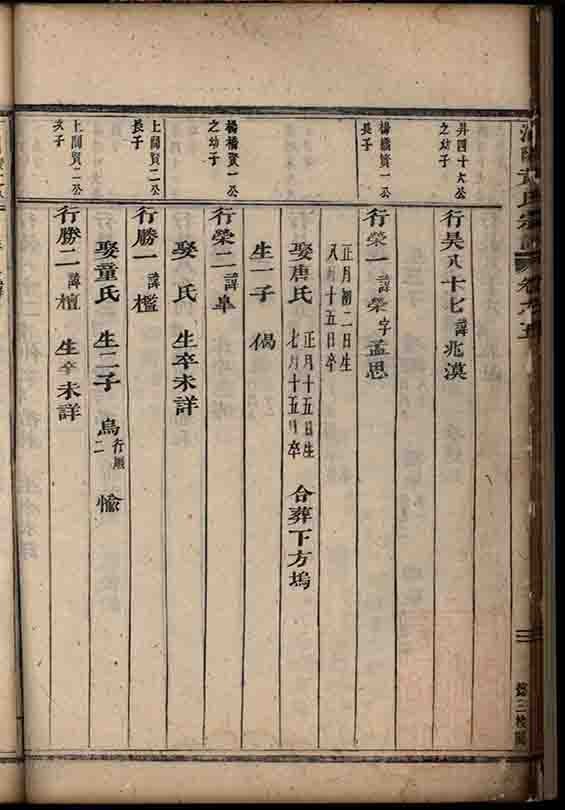 黃氏宗譜 卷六五
昇四十六公之幼子
行昊八十七 諱兆漠
楊橋賢一公長子
行榮一 諱榮 字孟思
正月初二日生 八月十五日卒
娶唐氏 正月十五日生 七月十五日卒 合葬下方塢
生一子 偈
楊橋賢一公之幼子
行榮二 諱皐
娶 氏 生卒未詳
上關賢二公長子
行勝一 諱檻
娶童氏 生二子 鳥 行順二 愉
上關賢二公次子
行勝二 諱檀 生卒未詳